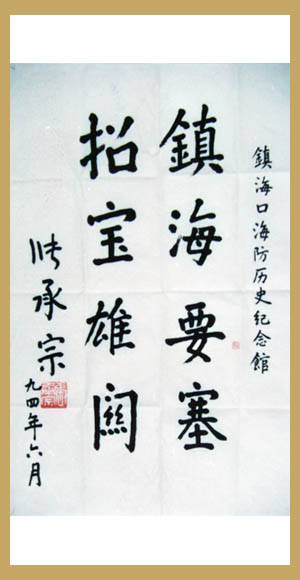 鎮海口海防历史纪念館
鎮海要塞
招宝雄關
张承宗
九四年六月